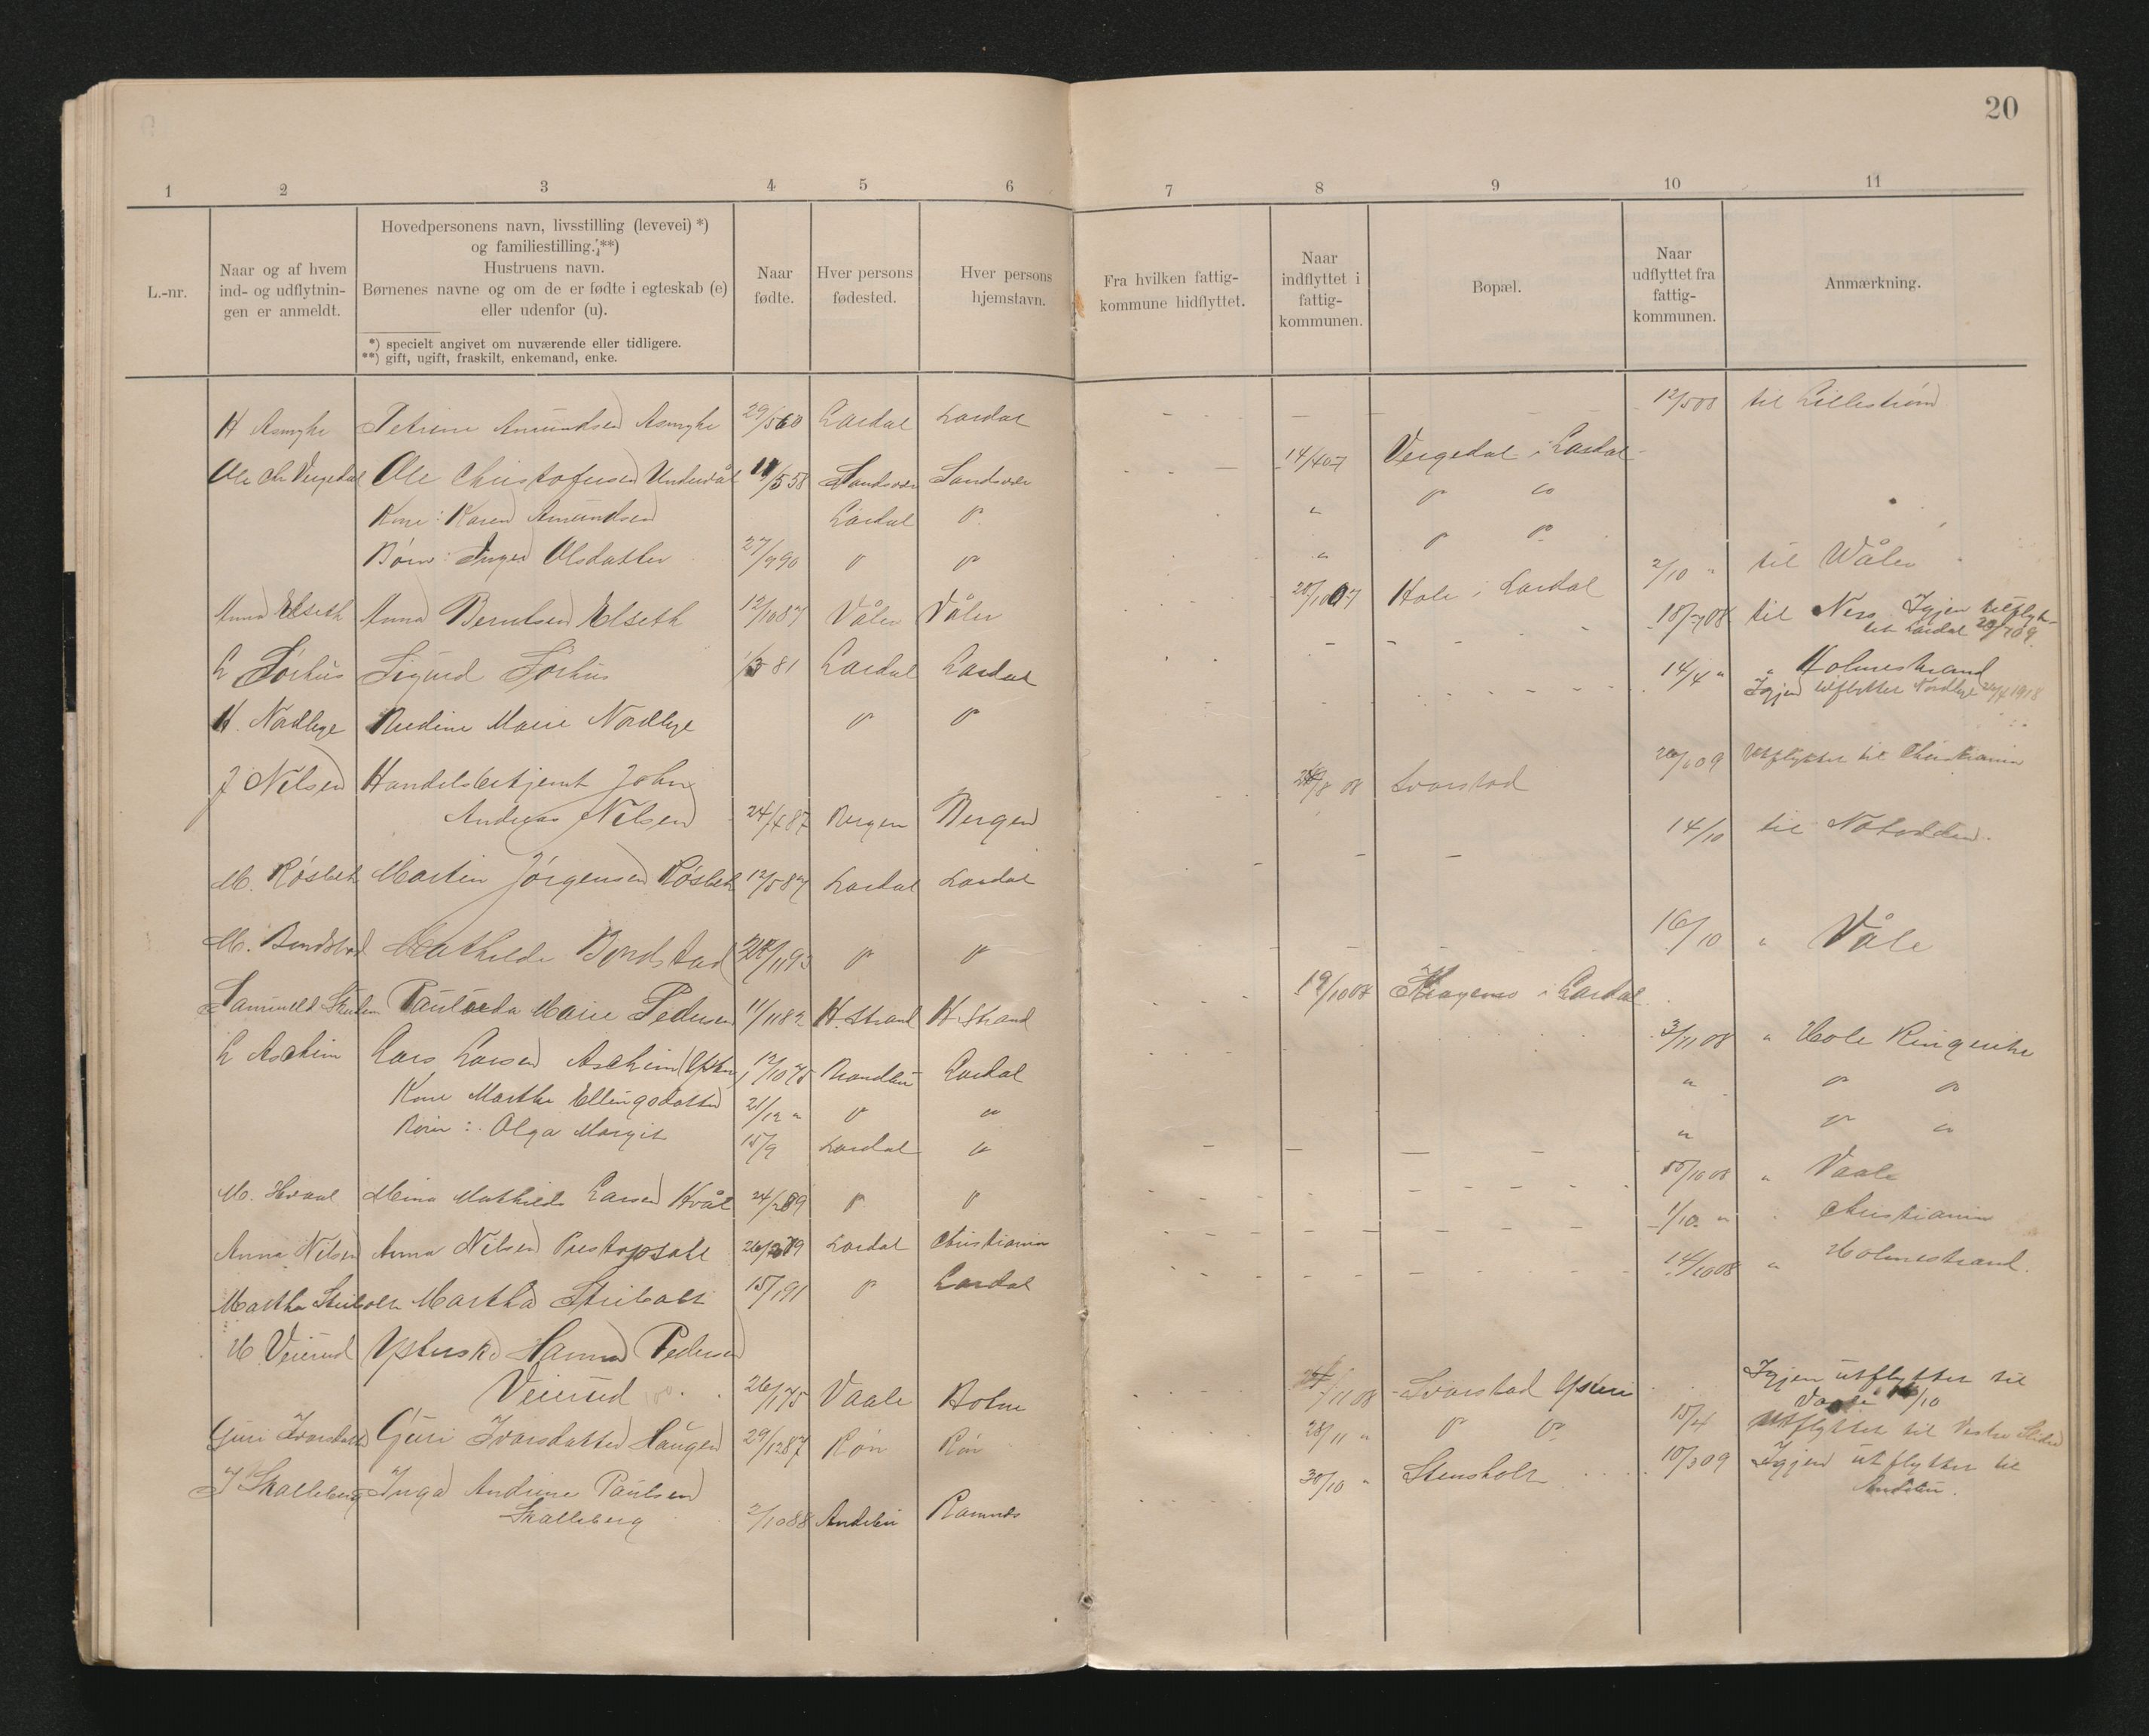 20
1 2 3 4 5 6 7 8 9 10 11
L.-nr.
Naar og af hvem
ind- og udflytnin-
gen er anmeldt.
Hovedpersonens navn, livsstilling (levevei) *)
og familiestilling. **)
Hustruens navn.
Børnenes navne og om de er fødte i egteskab (e)
eller udenfor (u).
*) specielt angivet om nuværende eller tidligere.
**) gift, ugift, fraskilt, enkemand, enke.
Naar
fødte.
Hver persons
fødested.
Hver persons
hjemstavn.
Fra hvilken fattig-
kommune hidflyttet.
Naar
indflyttet i
fattig-
kommunen.
Bopæl.
Naar
udflyttet fra
fattig-
kommunen.
Anmærkning.
H Asmyhr Petrine Amundsen Asmyhr 29/5 60 Lardal Lardal 12/5 08 til Lillestrøm
Ole Chr Vergedal Ole Christofersen 11/5 58 Sandsvær Sandsvær 14/4 07 Vergedal i Lardal
Kone: Karen Amundsen Lardal " " " "
Børn: Inger Olsdatter 27/9 90 " " " " "
Anna Elseth Anna Berntsen Elseth 12/10 87 Våler Våler 28/10 07 Hole i Lardal 2/10 " til Våler
L Sørhus Sigurd Sørhus 81 Lardal Lardal 18/7 08 til Nes Igjen tilflyt-
til Lardal 20/7 09
H. Nordbye Nordbye " " 14/4 " " Holmestrand
Igjen tilflyttet Nordbye 1918
J Nilsen Handelsbetjent John
Andreas Nilsen 24/4 87 Bergen Bergen 8 08 Svarstad 09 Utflyttet til Christiania
M. Røsbek Martin Jørgensen Røsbek 12/5 87 Lardal Lardal 14/10 til Notodden.
M. Bondstad Mathilde Bondstad 11 93 " " 16/10 " Våle
Marie Pedersen 11/11 82 H.strand H.strand 19/10 07 i Lardal
L Aschim Lars Larsen Aschim 12/10 75 Brandbu Lardal 3/11 08 " Hole Ringerike
Kone Marthe Ellingsdatter 21/12 " " " " " "
Børn: Olga Margit 15/9 Lardal " " " "
M. Hvaal Mina Mathilde Larsen Hvål 24/2 89 " " 15/10 08 " Vaale
Anna Nilsen Anna Nilsen 26/ 89 Lardal Christiania 1/10 " " Christiania
Martha Stubolt Martha 15/1 91 " Lardal 14/10 08 " Holmestrand.
H. Veierud Hanna Pedersen
Veierud 26/1 75 Vaale Botne 11 08 Svarstad Ysteri Igjen utflyttet til
Vaale /10
Guri Ivarsdatter Guri Ivarsdatter Haugen 29/12 87 Røn Røn 28/11 " " " 15/4 Utflyttet til Vestre Slidre
I Skalleberg Inga Andrine Paulsen
Skalleberg 2/10 88 Andebu Ramnes 30/10 " Stensholt 10/3 09 Igjen utflyttet til
Andebu.